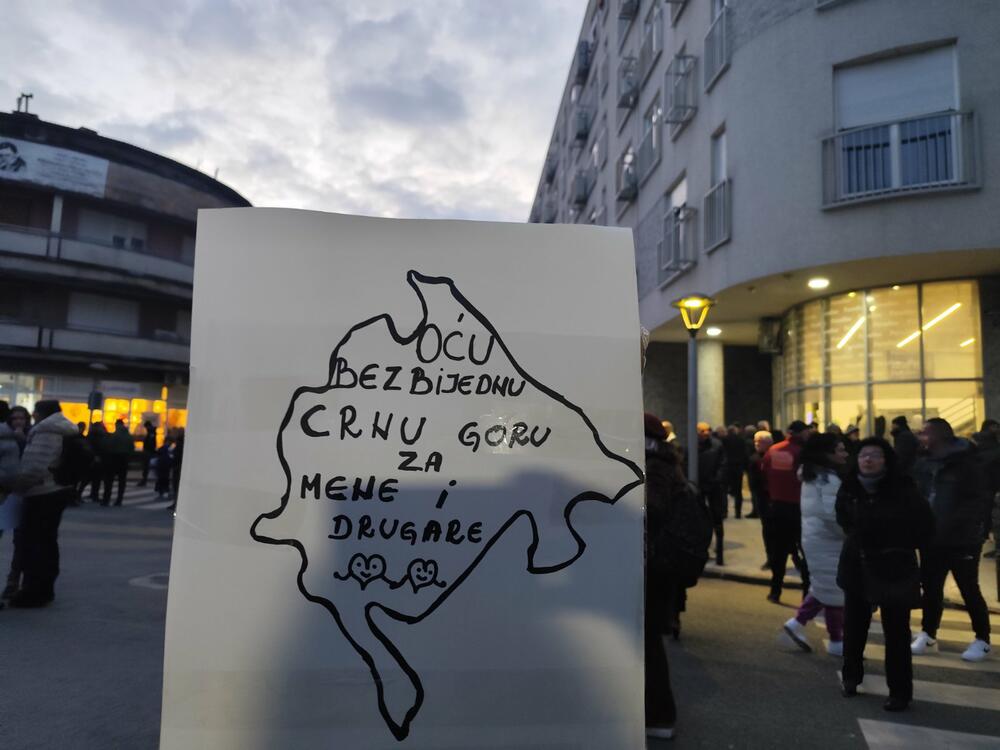 OĆU
BEZBIJEDNU
CRNU GORU
ZA
MENE i
DRUGARE